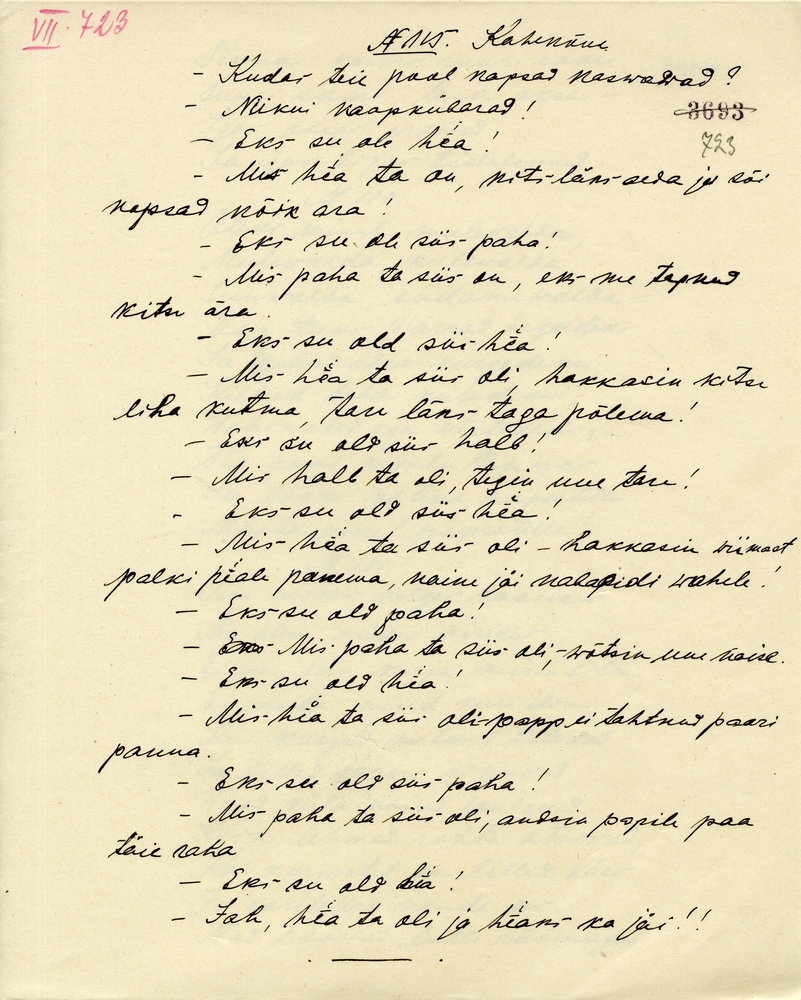 VII. 723
N 115. Kahekõne
- Kudas teie pool napsad kaswawad?
- Niikui kaapkübarad!
3693
- Eks su ole hëa!
723
- Mis hëa ta on, kits läks aeda ja sõi
napsad kõik ara!
- Eks su ole siis paha!
- Mis paha ta siis on, eks me tapnud
kitse ära.
- Eks su old siis hëa!
- Mis hëa ta siis oli, hakkasin kitse
liha kutma, tare läks taga põlema!
- Eks su old siis halb!
- Mis halb ta oli, tegin uue tare!
- Eks su old siis hëa!
- Mis hëa ta siis oli - hakkasin wiimast
palki pëale panema, naine jäi nabapidi wahele!
- Eks su old paha!
- Mis paha ta siis oli, - wõtsin uue naise.
- Eks su old hëa!
- Mis hëa ta siis oli - papp ei tahtnud paari
panna.
- Eks su old siis paha!
- Mis paha ta siis oli, andsin papile paa
täie raha
- Eks su old hëa!
- Jah, hëa ta oli ja hëaks ka jäi!!